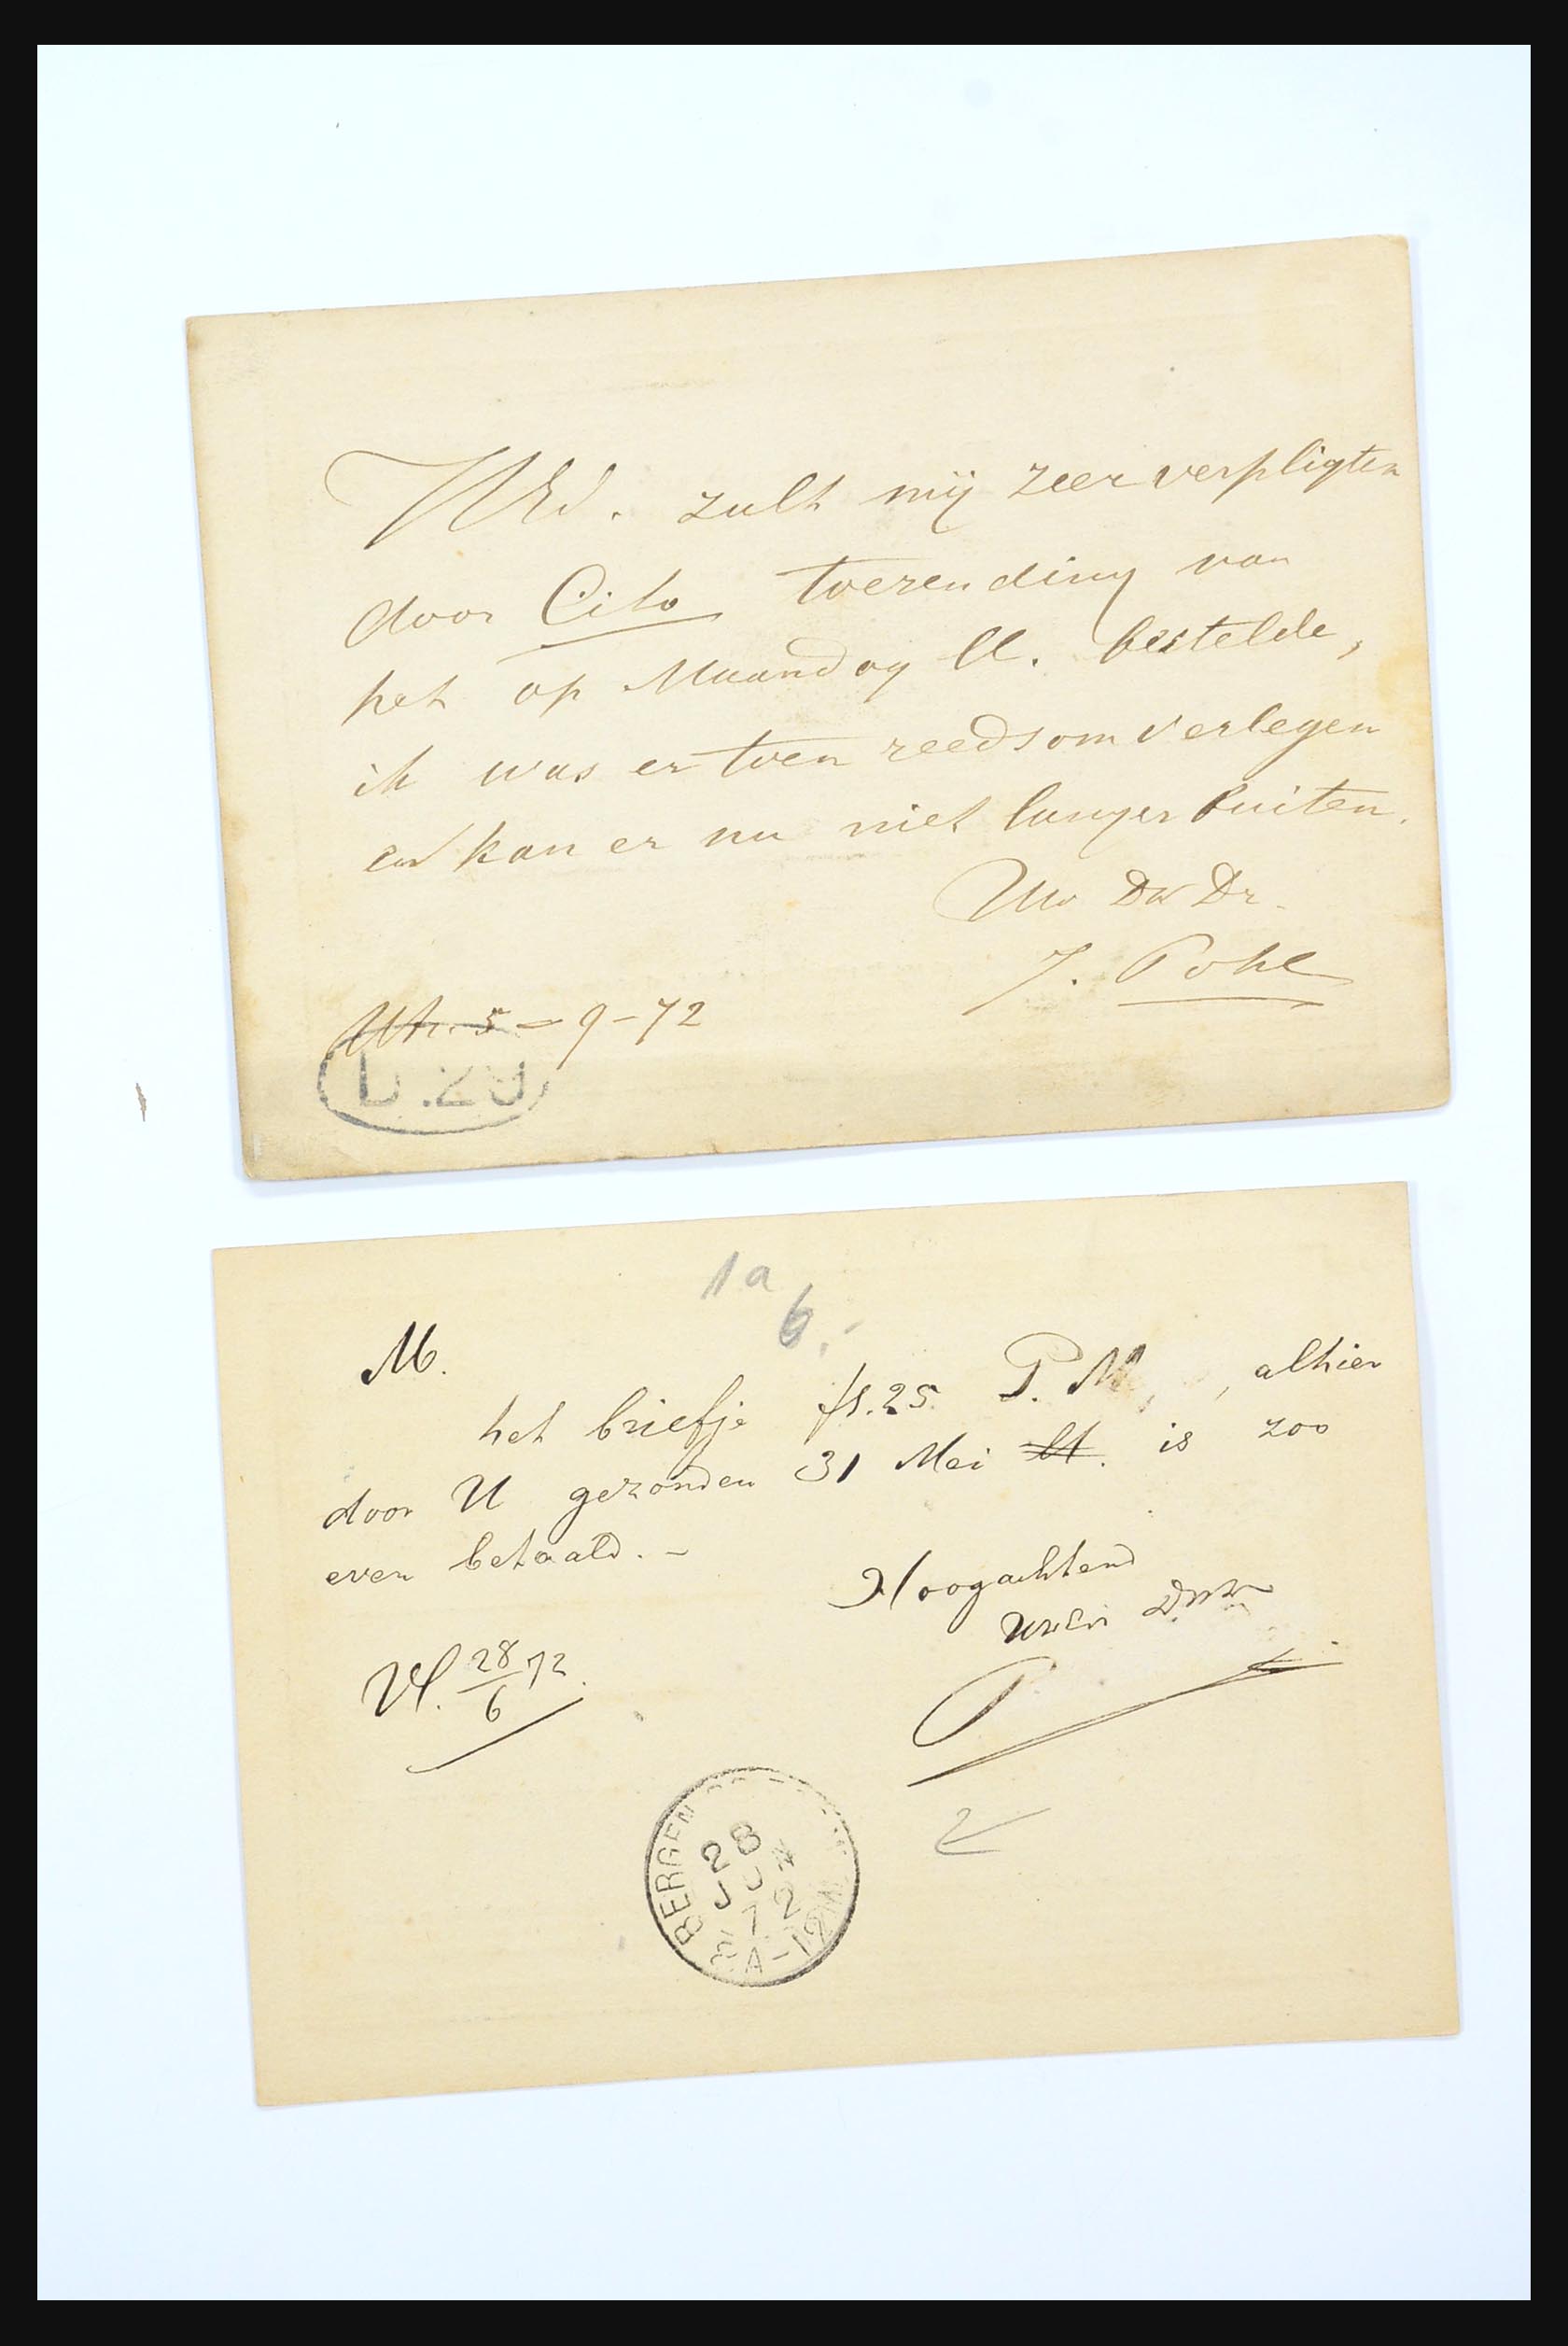 WEd. zult mij zeer verpligten
door Cito toezending van
het op Maandag ll. bestelde,
ik was er toen reeds om verlegen
en kan er nu niet langer buiten.
Uw Dw Dr.
J. Pohl
Utr. 5-9-72
D.29
1a
6.-
M.
het briefje fl.25 P. M , alhier
door U gezonden 31 Mei ll. is zoo
even betaald. -
Hoogachtend
UwEd
28/6 72
BERGEN
28
72
8A-12M